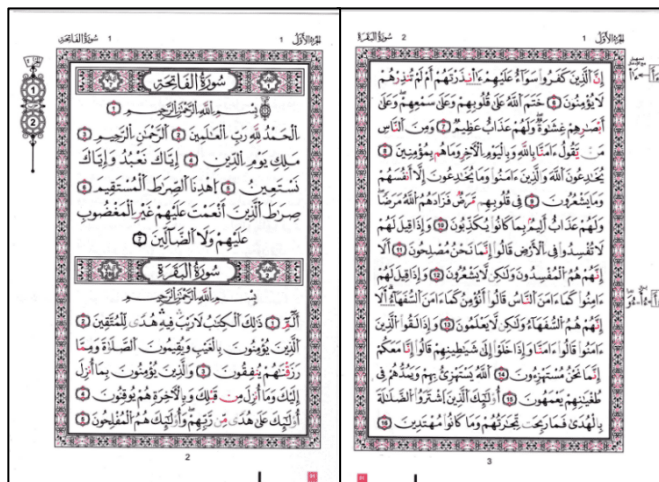 الجزء الأول 1
1 سورة الفاتحة
سُورَةُ الفَاتِحَةِ
بِسْمِ اللَّهِ الرَّحْمَٰنِ الرَّحِيمِ ١
الْحَمْدُ لِلَّهِ رَبِّ الْعَالَمِينَ ٢ الرَّحْمَٰنِ الرَّحِيمِ ٣
مَٰلِكِ يَوْمِ الدِّينِ ٤ إِيَّاكَ نَعْبُدُ وَإِيَّاكَ
نَسْتَعِينُ ٥ اهْدِنَا الصِّرَٰطَ الْمُسْتَقِيمَ ٦
صِرَٰطَ الَّذِينَ أَنْعَمْتَ عَلَيْهِمْ غَيْرِ الْمَغْضُوبِ
عَلَيْهِمْ وَلَا الضَّالِّينَ ٧
سُورَةُ البَقَرَةِ
بِسْمِ اللَّهِ الرَّحْمَٰنِ الرَّحِيمِ
الٓمٓ ١ ذَٰلِكَ الْكِتَٰبُ لَا رَيْبَ فِيهِ هُدًى لِّلْمُتَّقِينَ ٢
الَّذِينَ يُؤْمِنُونَ بِالْغَيْبِ وَيُقِيمُونَ الصَّلَوٰةَ وَمِمَّا
رَزَقْنَٰهُمْ يُنفِقُونَ ٣ وَالَّذِينَ يُؤْمِنُونَ بِمَا أُنزِلَ
إِلَيْكَ وَمَا أُنزِلَ مِن قَبْلِكَ وَبِالْءَاخِرَةِ هُمْ يُوقِنُونَ ٤
أُولَٰئِكَ عَلَىٰ هُدًى مِّن رَّبِّهِمْ وَأُولَٰئِكَ هُمُ الْمُفْلِحُونَ ٥
2
الجزء الأول 1
2 سورة البقرة
إِنَّ الَّذِينَ كَفَرُوا سَوَاءٌ عَلَيْهِمْ ءَأَنذَرْتَهُمْ أَمْ لَمْ تُنذِرْهُمْ
لَا يُؤْمِنُونَ ٦ خَتَمَ اللَّهُ عَلَىٰ قُلُوبِهِمْ وَعَلَىٰ سَمْعِهِمْ وَعَلَىٰ
أَبْصَٰرِهِمْ غِشَٰوَةٌ وَلَهُمْ عَذَابٌ عَظِيمٌ ٧ وَمِنَ النَّاسِ
مَن يَقُولُ ءَامَنَّا بِاللَّهِ وَبِالْيَوْمِ الْءَاخِرِ وَمَا هُم بِمُؤْمِنِينَ ٨
يُخَٰدِعُونَ اللَّهَ وَالَّذِينَ ءَامَنُوا وَمَا يَخْدَعُونَ إِلَّا أَنفُسَهُمْ
وَمَا يَشْعُرُونَ ٩ فِي قُلُوبِهِم مَّرَضٌ فَزَادَهُمُ اللَّهُ مَرَضًا
وَلَهُمْ عَذَابٌ أَلِيمٌ بِمَا كَانُوا يَكْذِبُونَ ١٠ وَإِذَا قِيلَ لَهُمْ
لَا تُفْسِدُوا فِي الْأَرْضِ قَالُوا إِنَّمَا نَحْنُ مُصْلِحُونَ ١١ أَلَا
إِنَّهُمْ هُمُ الْمُفْسِدُونَ وَلَٰكِن لَّا يَشْعُرُونَ ١٢ وَإِذَا قِيلَ لَهُمْ
ءَامِنُوا كَمَا ءَامَنَ النَّاسُ قَالُوا أَنُؤْمِنُ كَمَا ءَامَنَ السُّفَهَاءُ أَلَا
إِنَّهُمْ هُمُ السُّفَهَاءُ وَلَٰكِن لَّا يَعْلَمُونَ ١٣ وَإِذَا لَقُوا الَّذِينَ
ءَامَنُوا قَالُوا ءَامَنَّا وَإِذَا خَلَوْا إِلَىٰ شَيَٰطِينِهِمْ قَالُوا إِنَّا مَعَكُمْ
إِنَّمَا نَحْنُ مُسْتَهْزِءُونَ ١٤ اللَّهُ يَسْتَهْزِئُ بِهِمْ وَيَمُدُّهُمْ فِي
طُغْيَٰنِهِمْ يَعْمَهُونَ ١٥ أُولَٰئِكَ الَّذِينَ اشْتَرَوُا الضَّلَٰلَةَ
بِالْهُدَىٰ فَمَا رَبِحَت تِّجَٰرَتُهُمْ وَمَا كَانُوا مُهْتَدِينَ ١٦
3